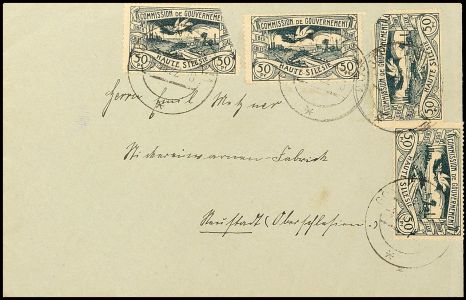 COMMISSION DE GOUVERNEMENT
50 HAUTE SILESIE 50
COMMISSION DE GOUVERNEMENT
50 HAUTE SILESIE 50
COMMISSION DE GOUVERNEMENT
50 HAUTE SILESIE 50
COMMISSION DE GOUVERNEMENT
50 HAUTE SILESIE 50
Herrn Emil Metzner
Stickereiwaren-Fabrik
Neustadt (Oberschlesien)